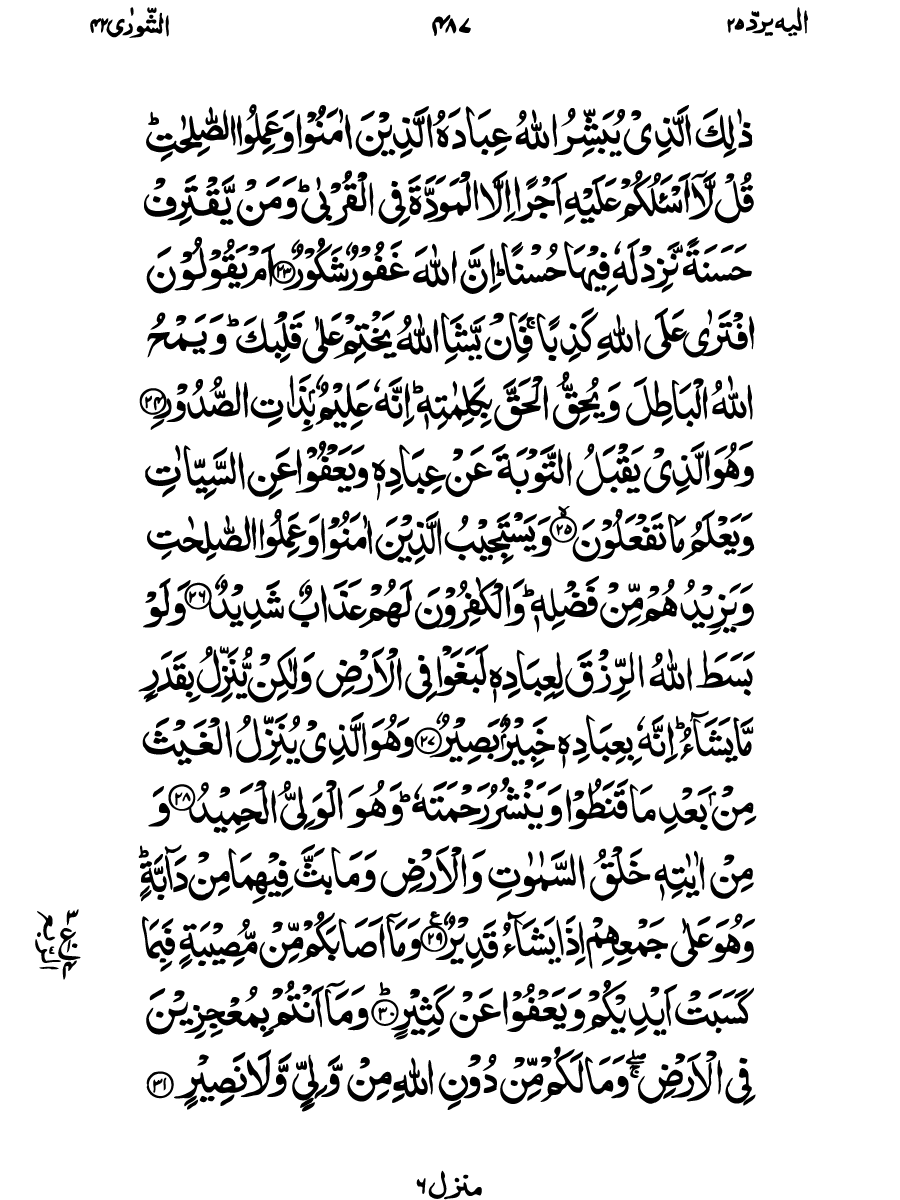 الیه یردّ ۲۵
۴۸۷
الشّورٰی ۴۲
ذٰلِكَ الَّذِیْ یُبَشِّرُ اللّٰهُ عِبَادَهُ الَّذِیْنَ اٰمَنُوْا وَعَمِلُوا الصّٰلِحٰتِ ؕ
قُلْ لَّاۤ اَسْـَٔلُكُمْ عَلَیْهِ اَجْرًا اِلَّا الْمَوَدَّةَ فِی الْقُرْبٰی ؕ وَمَنْ یَّقْتَرِفْ
حَسَنَةً نَّزِدْ لَهٗ فِیْهَا حُسْنًا ؕ اِنَّ اللّٰهَ غَفُوْرٌ شَكُوْرٌ ﴿۲۳﴾ اَمْ یَقُوْلُوْنَ
افْتَرٰی عَلَی اللّٰهِ كَذِبًا ۚ فَاِنْ یَّشَاِ اللّٰهُ یَخْتِمْ عَلٰی قَلْبِكَ ؕ وَیَمْحُ
اللّٰهُ الْبَاطِلَ وَیُحِقُّ الْحَقَّ بِكَلِمٰتِهٖ ؕ اِنَّهٗ عَلِیْمٌۢ بِذَاتِ الصُّدُوْرِ ﴿۲۴﴾
وَهُوَ الَّذِیْ یَقْبَلُ التَّوْبَةَ عَنْ عِبَادِهٖ وَیَعْفُوْا عَنِ السَّیِّاٰتِ
وَیَعْلَمُ مَا تَفْعَلُوْنَ ﴿ۙ۲۵﴾ وَیَسْتَجِیْبُ الَّذِیْنَ اٰمَنُوْا وَعَمِلُوا الصّٰلِحٰتِ
وَیَزِیْدُهُمْ مِّنْ فَضْلِهٖ ؕ وَالْكٰفِرُوْنَ لَهُمْ عَذَابٌ شَدِیْدٌ ﴿۲۶﴾ وَلَوْ
بَسَطَ اللّٰهُ الرِّزْقَ لِعِبَادِهٖ لَبَغَوْا فِی الْاَرْضِ وَلٰكِنْ یُّنَزِّلُ بِقَدَرٍ
مَّا یَشَآءُ ؕ اِنَّهٗ بِعِبَادِهٖ خَبِیْرٌۢ بَصِیْرٌ ﴿۲۷﴾ وَهُوَ الَّذِیْ یُنَزِّلُ الْغَیْثَ
مِنْۢ بَعْدِ مَا قَنَطُوْا وَیَنْشُرُ رَحْمَتَهٗ ؕ وَهُوَ الْوَلِیُّ الْحَمِیْدُ ﴿۲۸﴾ وَ
مِنْ اٰیٰتِهٖ خَلْقُ السَّمٰوٰتِ وَالْاَرْضِ وَمَا بَثَّ فِیْهِمَا مِنْ دَآبَّةٍ ؕ
وَهُوَ عَلٰی جَمْعِهِمْ اِذَا یَشَآءُ قَدِیْرٌ ﴿۲۹﴾ وَمَاۤ اَصَابَكُمْ مِّنْ مُّصِیْبَةٍ فَبِمَا
كَسَبَتْ اَیْدِیْكُمْ وَیَعْفُوْا عَنْ كَثِیْرٍ ﴿ؕ۳۰﴾ وَمَاۤ اَنْتُمْ بِمُعْجِزِیْنَ
فِی الْاَرْضِ ۖۚ وَمَا لَكُمْ مِّنْ دُوْنِ اللّٰهِ مِنْ وَّلِیٍّ وَّلَا نَصِیْرٍ ﴿۳۱﴾
منزل ۶